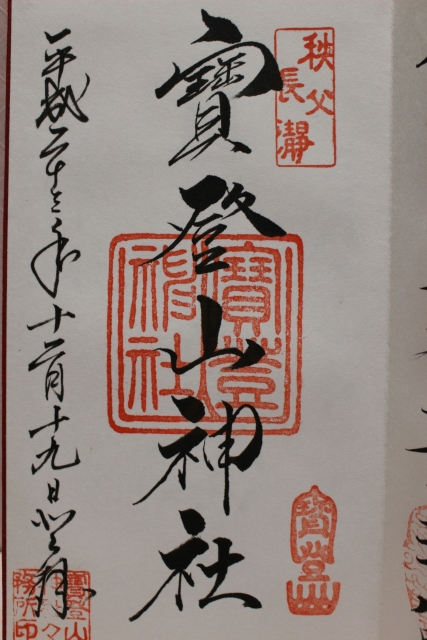 秩父
長瀞
寳登山神社
寳登山神社
寳登山
平成二十三年十二月十九日登拝
寳登山
務所印